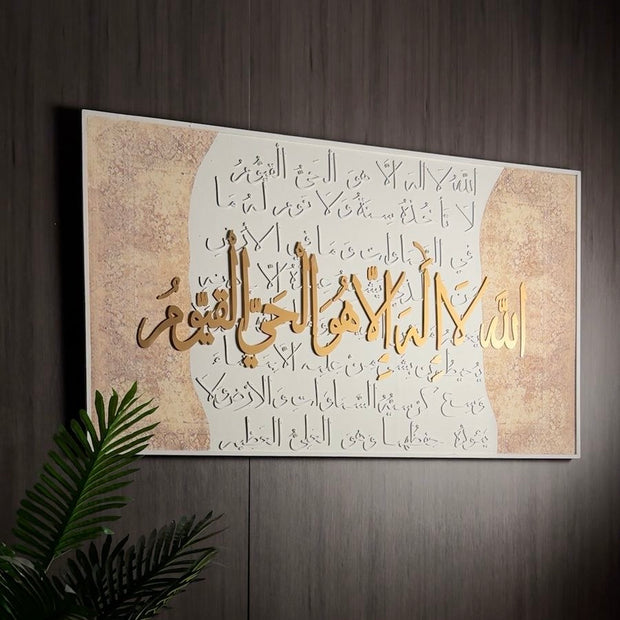 الله لا اله الا هو الحي القيوم
لا تاخذه سنة ولا نوم له ما
في السماوات وما في الارض
اللهُ لَا إِلَهَ إِلَّا هُوَ الْحَيُّ الْقَيُّومُ
يحيطون بشيء من علمه الا
وسع كرسيه السماوات والارض ولا
يئوده حفظهما وهو العلي العظيم